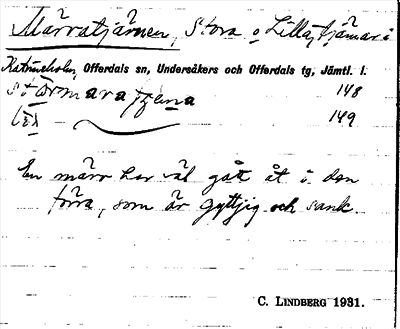 Märratjärnen, Stora o Lilla, tjärnar i
Katrineholm, Offerdals sn, Undersåkers och Offerdals tg, Jämtl. l.
148
149
En märr har väl gått åt i den
förra, som är gyttjig och sank.
C. LINDBERG 1931.